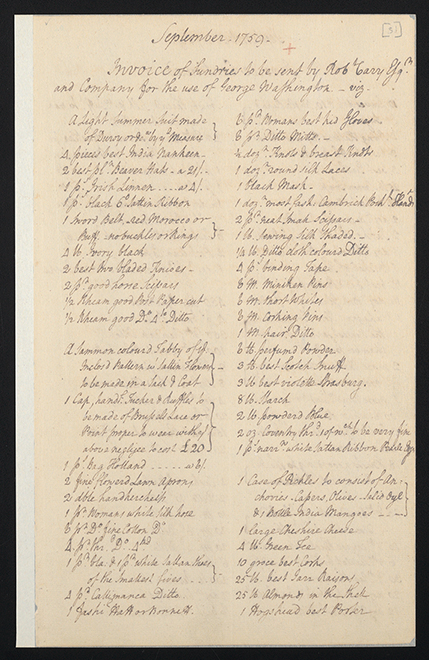 September 1759.
[3]
Invoice of Sundries to be sent by Robt Cary Esqr
and Company for the use of George Washington — viz
A Light Summer Suit made
of Duroy or &ca by ye Measure
4 pieces best India Nankeen
2 best pln Beaver Hats — a 21/-
1 ps Irish Linnen ... at 4/.
1 pc black 6d Sattin Ribbon
1 Sword Belt, red Morocco or
Buff. no buckles or Rings
4 lb Ivory black
2 best two bladed Knives
2 pr good horse Scissars
1/2 Rheam good Post Paper cut
1/2 Rheam good Do 4to Ditto
A Sammon coloured Tabby of ye
Inclosd Pattern wt Sattin Flowers
to be made in a Sack & Coat
1 Cap, handf. Tucker & Ruffles to
be made of Brussels Lace or
Point proper to wear with ye
above negligee to cost £20
1 ps Bag Holland ..... 6/.
2 fine flowerd Lawn Aprons
2 dble handkerchiefs
1 pr Womans white Silk hose
6 pr Do fine Cotton Do
4 pr thr. Do 4 thd
1 pr bla. & 1 pr white Sattan Shoes
of the Smallest fives
4 pr Callimanca Ditto
1 fashe Hatt or Bonnett.
6 pr Womans best kid Gloves
6 pr Ditto Mitts.
1/2 dozn Knots & breast Knots
1 dozn round Silk Laces
1 black Mask
1 dozn most fash. Cambrick
2 pr neat Small Scissars
1 lb Sewing Silk Shaded
1/4 lb Ditto cloth coloured Ditto
4 ps binding Tape
6 M. Miniken Pins
6 M. Short Whites
6 M. Corking Pins
1 M. hair Ditto
6 lb perfumd Powder
3 lb best Scotch Snuff
3 lb best violette Strasburg.
8 lb Starch
2 lb powderd Blue
2 oz. Coventry thr. 1 of wch to be very fine
1 ps narrw. white Sattan Ribbon Pearle Edge
1 Case of Pickles to consist of An
chovies — Capers Olives — Salid Oyl
& 1 Bottle India Mangoes
1 large Cheshire Cheese
4 lb Green Tea
10 groce best Corks
25 lb best Jarr Raisons
25 lb Almonds in the Shell
1 Hogshead best Porter